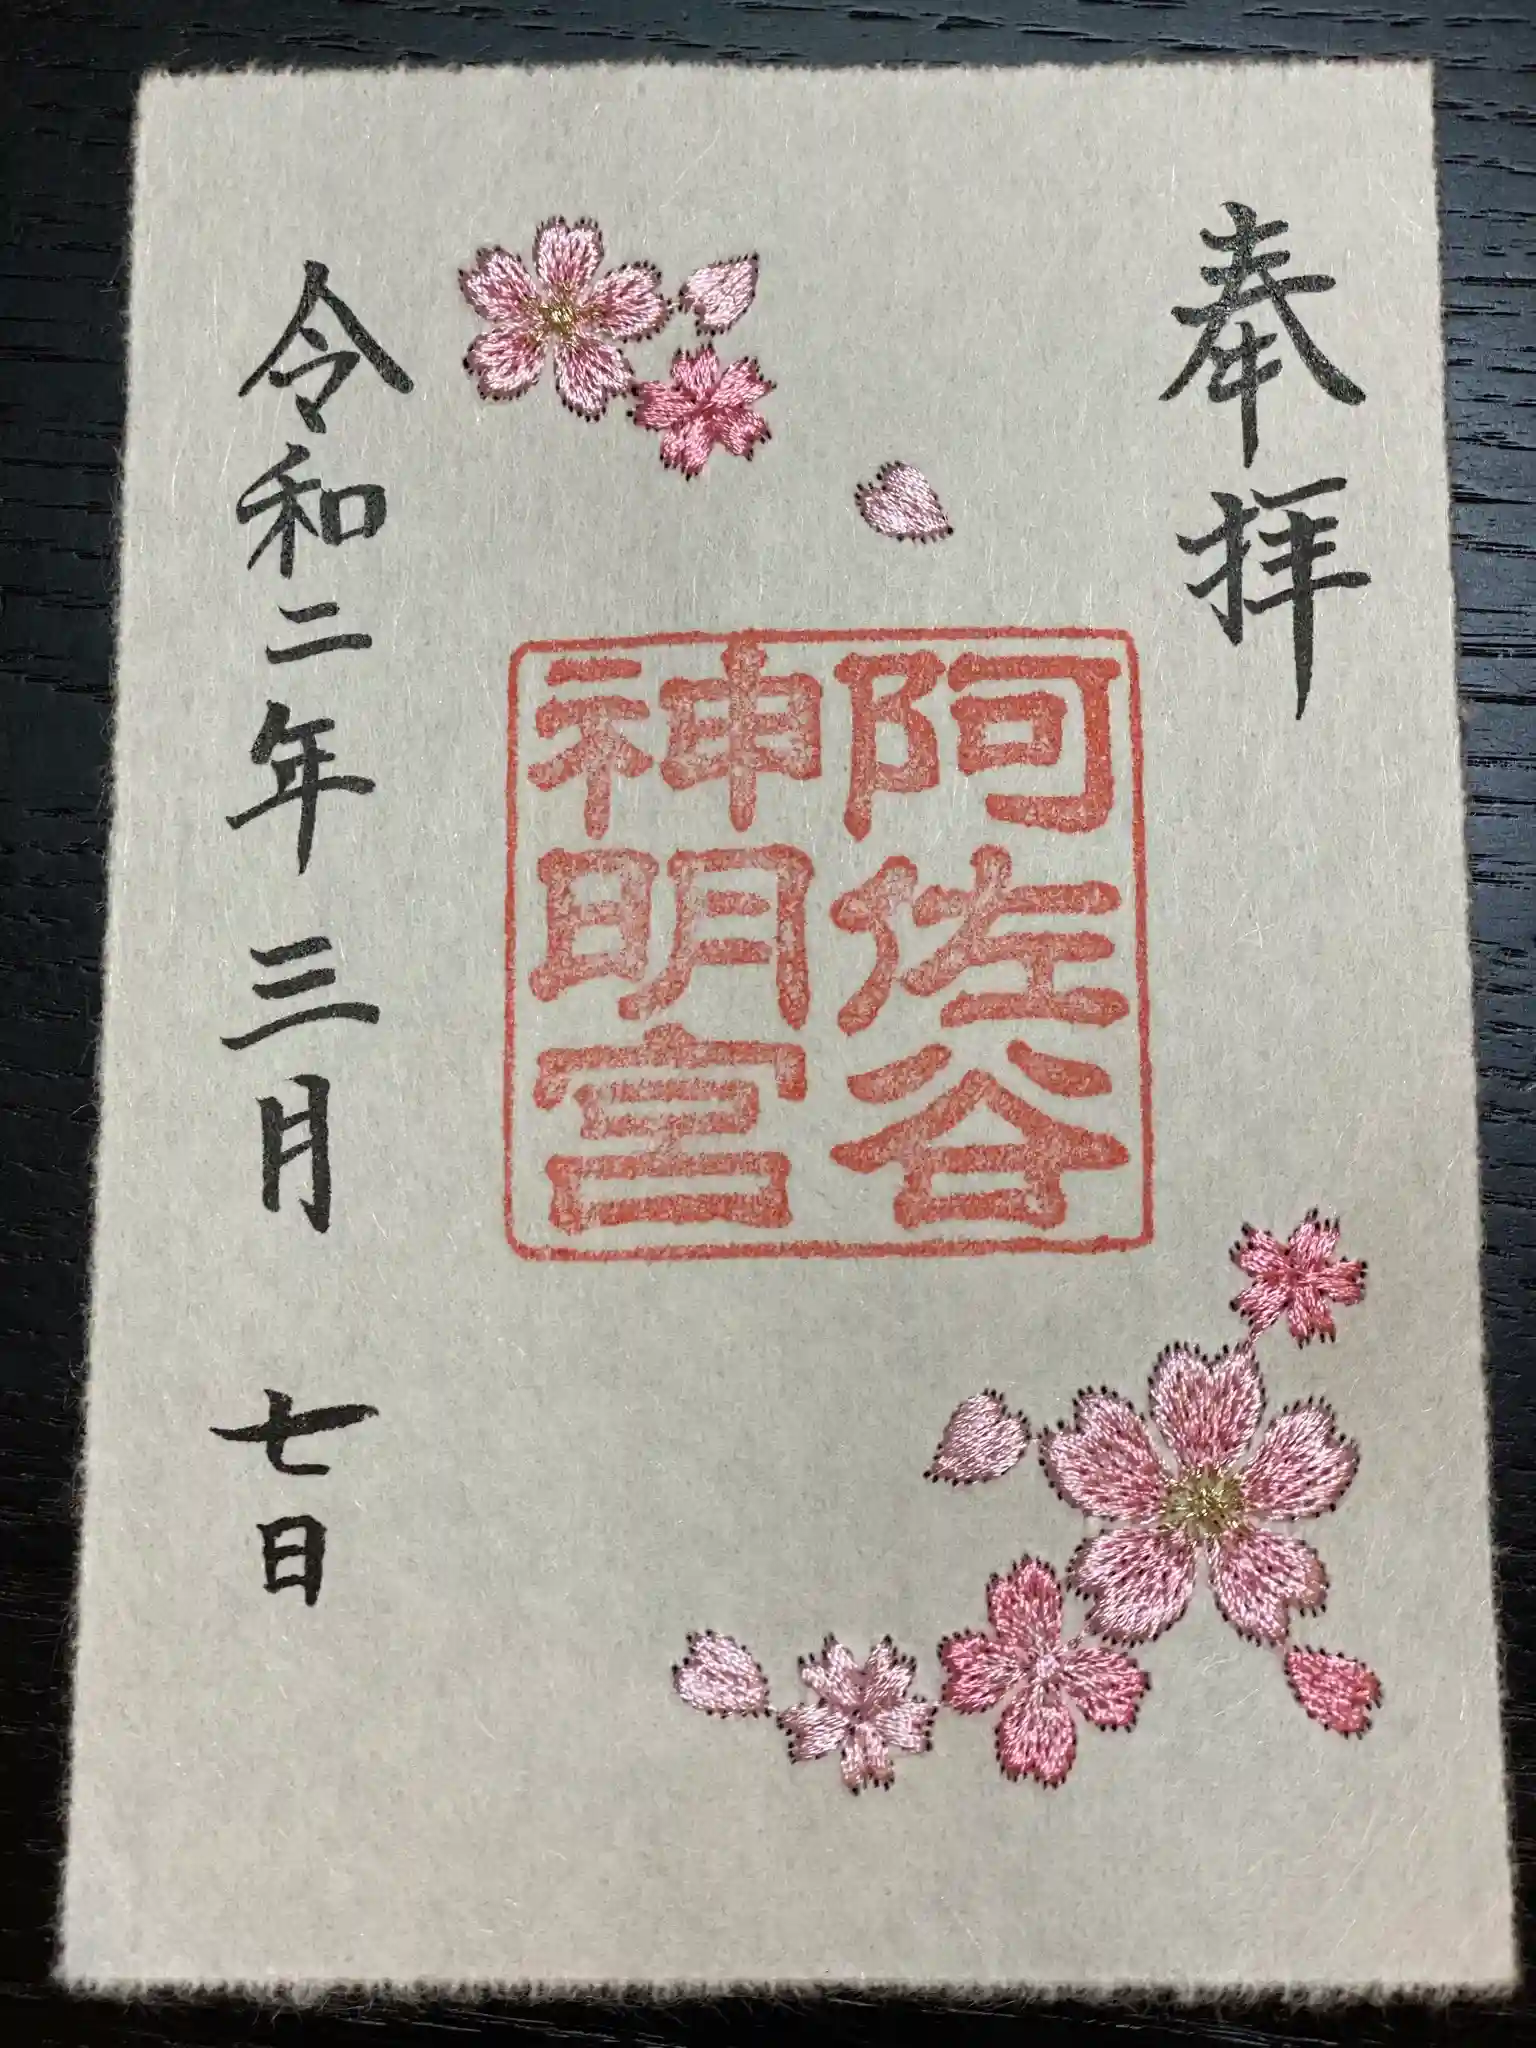 奉拝
阿佐谷
神明宮
令和二年三月七日